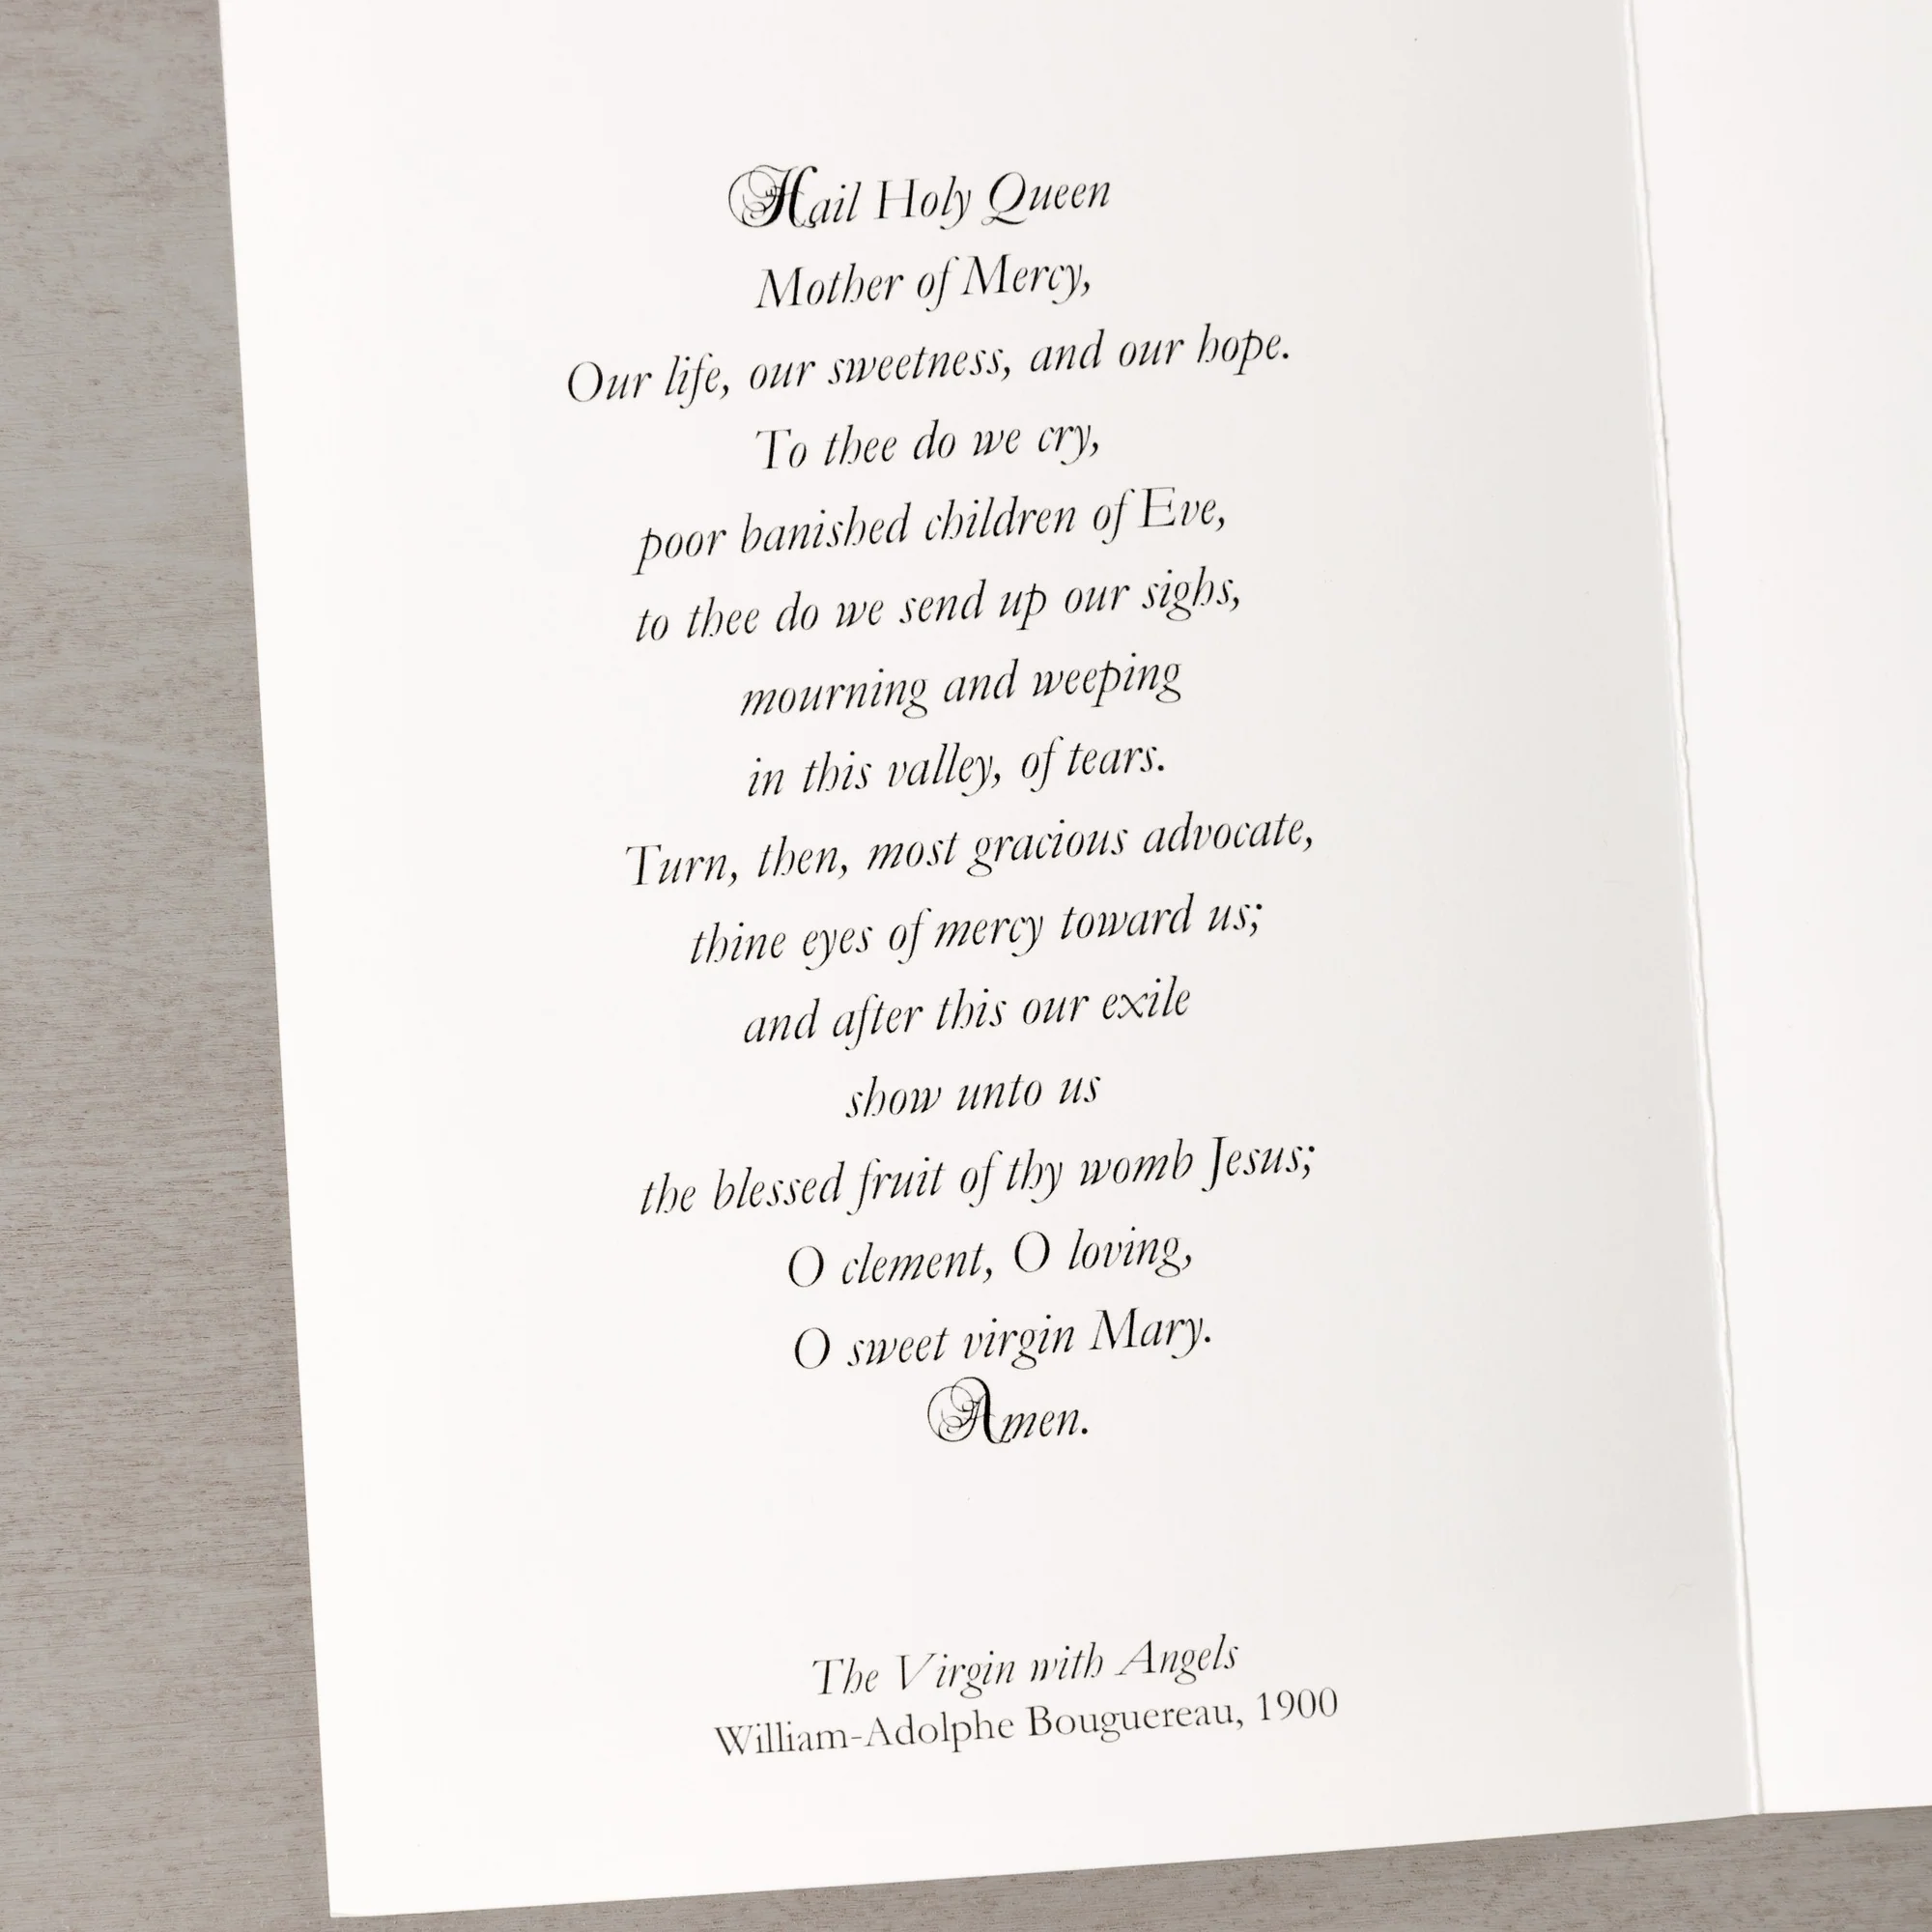 Hail Holy Queen
Mother of Mercy,
Our life, our sweetness, and our hope.
To thee do we cry,
poor banished children of Eve,
to thee do we send up our sighs,
mourning and weeping
in this valley, of tears.
Turn, then, most gracious advocate,
thine eyes of mercy toward us;
and after this our exile
show unto us
the blessed fruit of thy womb Jesus;
O clement, O loving,
O sweet virgin Mary.
Amen.
The Virgin with Angels
William-Adolphe Bouguereau, 1900